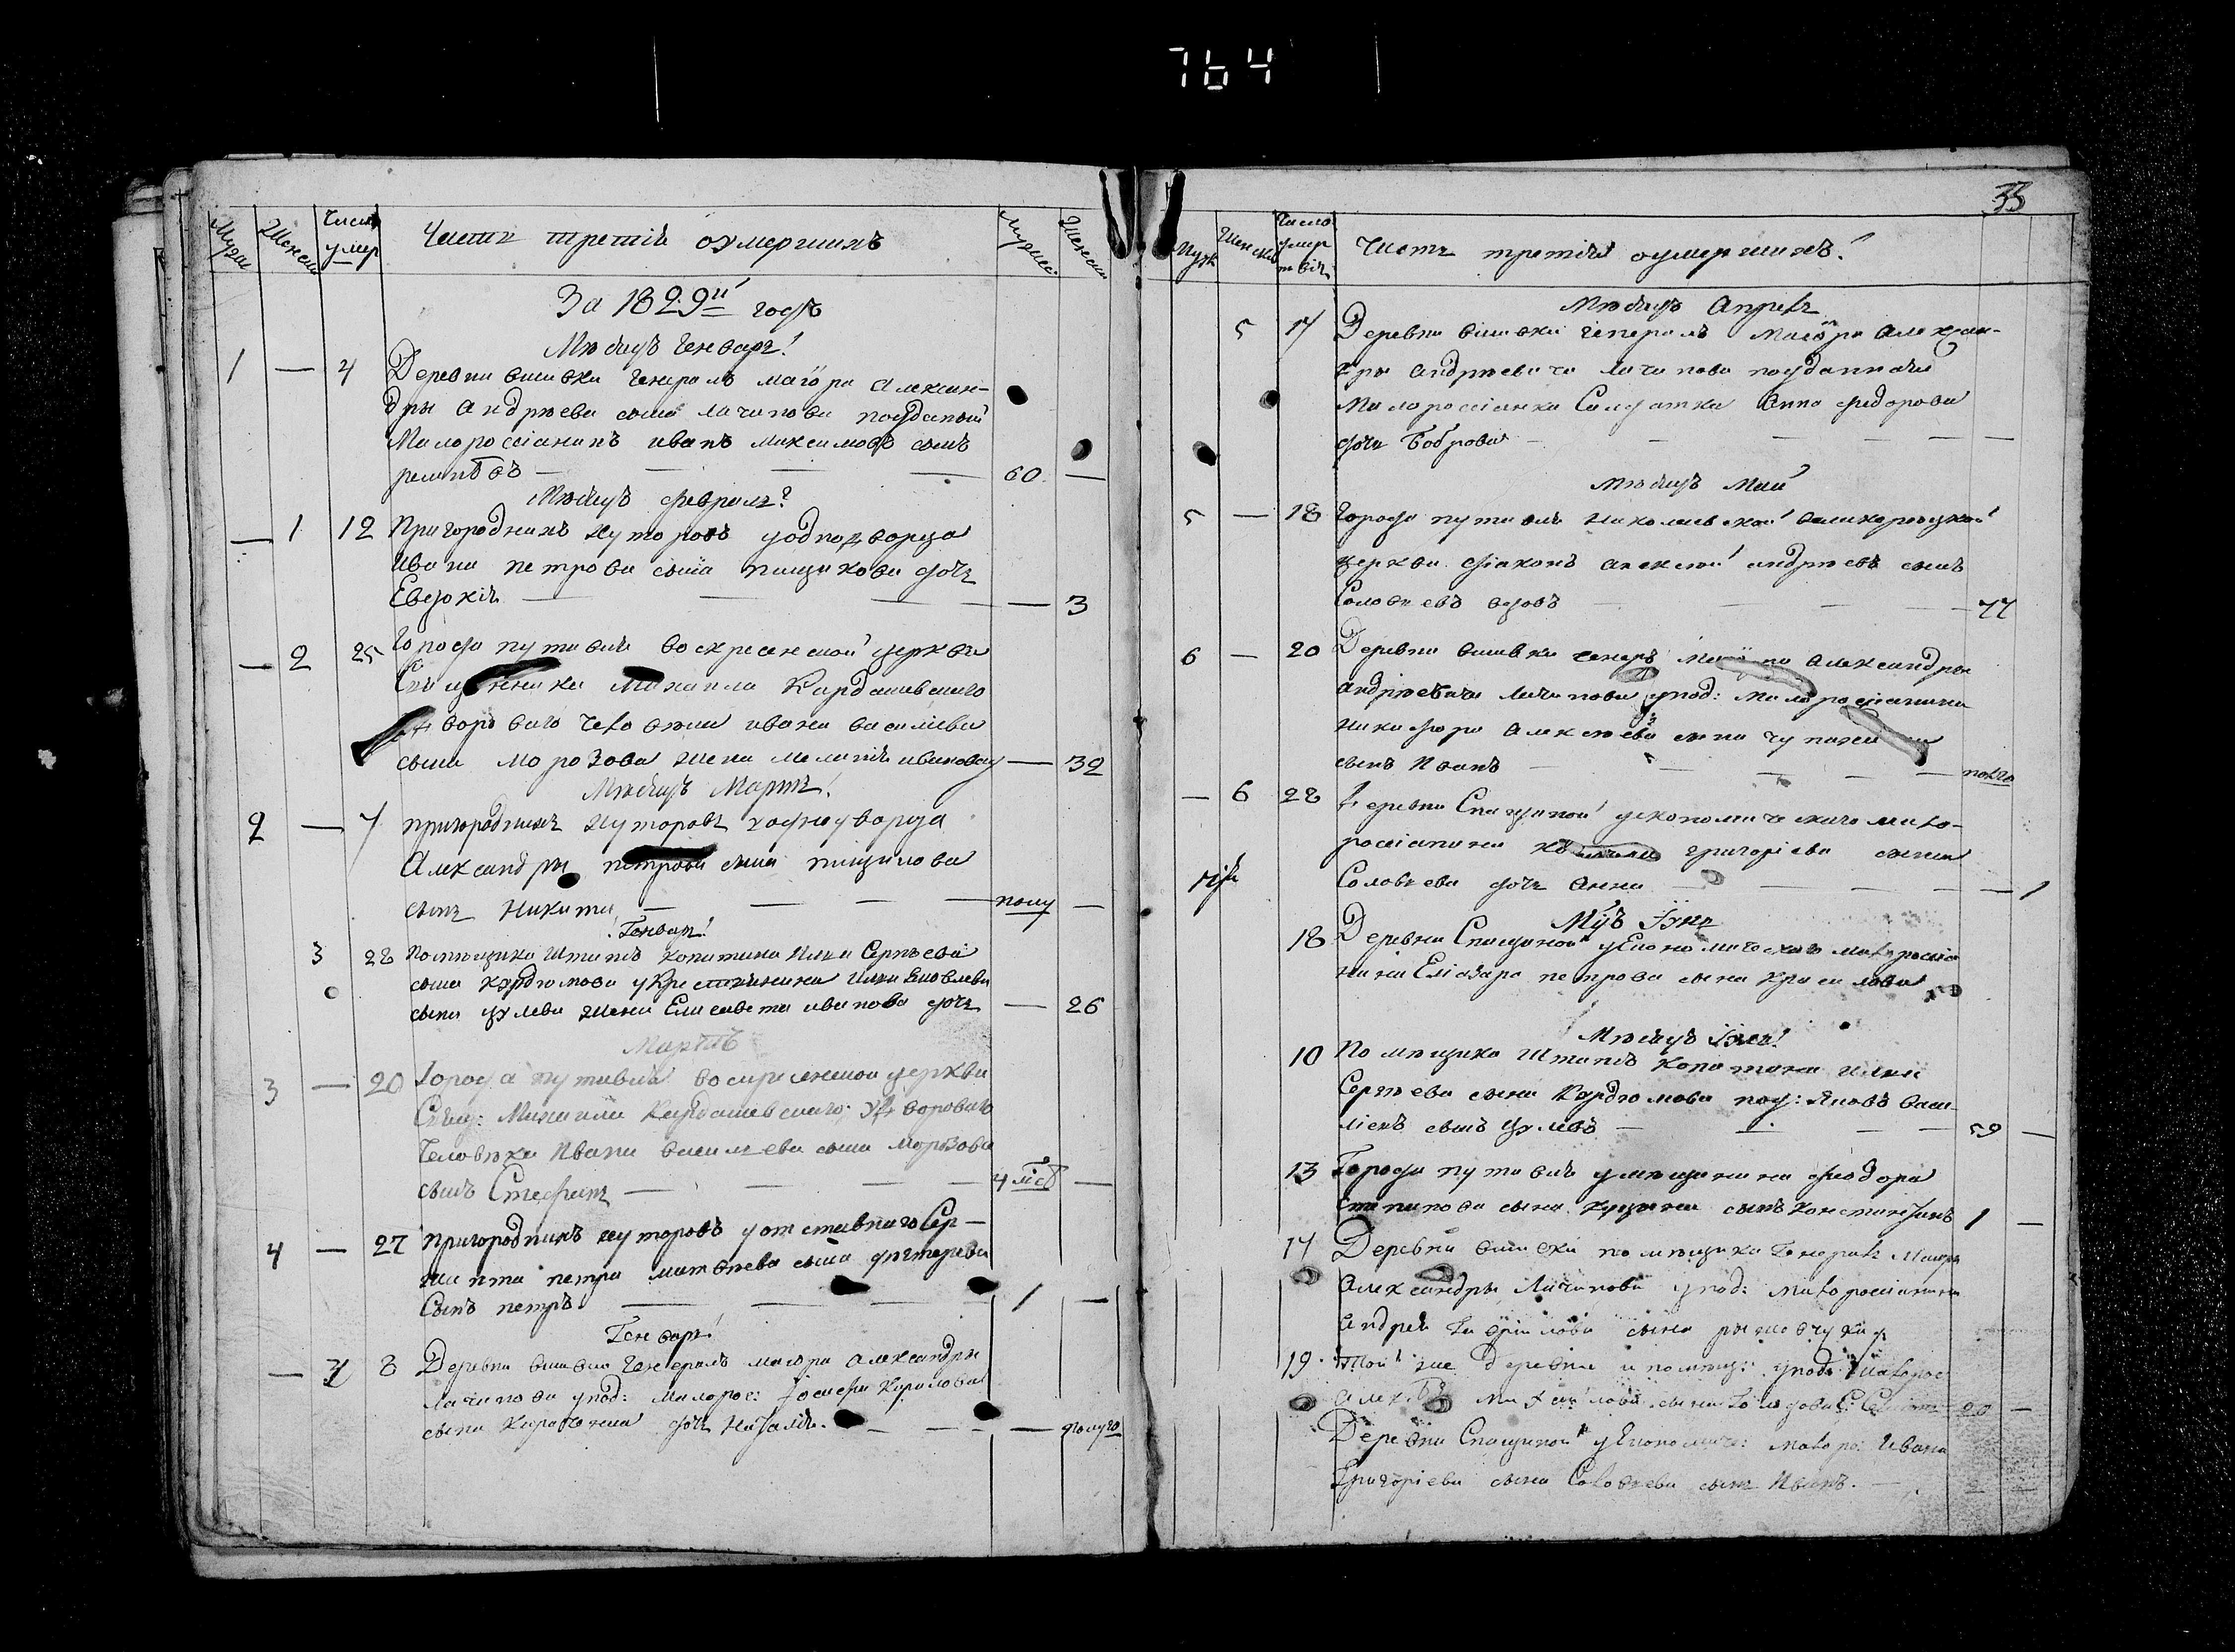 764
Мужес Женски Число умер Часть третія оумершихъ Мужеск Женски
За 1829й годъ
Мѣсяцъ Генварь
1 — 4 Деревни вишвки Генералъ маіора Алексан-
дры Андрѣева сына лачинова поданый
Малоросіанинъ иванъ максимовъ сынъ
— — — 60 —
Мѣсяцъ февраль
— 1 12 Пригороднихъ хуторовъ уоднодворца
Ивана петрова сына пищикова дочь
Евдокія — — — — 3
— 2 25 Города путивля воскресенской церкви
Михаила Кардашевскаго
двороваго человѣка ивана василіева
сына морозова жена меланія иванова — 32
Мѣсяцъ Мартъ
2 — 7 пригороднихъ хуторовъ уоднодворца
Александры петрова сына пищикова
сынъ Никита — — — полу —
Генварь
3 28 Помѣщика Штапсъ капитана Ильи Сергѣева
сына курдюмова укрестіянина Ильи Яковлева
сына жена Елисавета иванова дочь — 26
Мартъ
3 — 20 Города путивля воскресенской церкви
Свящ: Михаила Кардашевскаго: у дворовага
Человѣка Ивана василіева сына морозова
сынъ Стефанъ — — — — 4 мѣс —
4 — 27 Пригороднихъ хуторовъ уотставнаго Сер-
жанта петра матвѣева сына
Сынъ петръ — — — — 1 —
Генварь
— 4 8 Деревни вишвки Генералъ маіора Александры
лачинова упод: малорос: Іосифа Кирилова
сына дочь Наталія — — — — полуго
33
Муж Женски Число умер твія Часть третія оумершихъ
Мѣсяцъ Апрель
5 17 Деревни вишвки Генералъ Маіора Алексан-
дры андрѣевича лачинова подданная
Малоросіанка Салдатка Анна федорова
дочь Боброва — — — — —
Мѣсяцъ Май
5 — 18 Города путивля Николаевской великорецкой
церкви діаконъ алексей андрѣевъ сынъ
Соловьевъ вдовъ — — — — 77
6 — 20 Деревни вишвки генерлъ Маіора Александры
андрѣевича лачинова упод: малоросіанина
никифора Алексѣева сына
сынъ Иванъ — — — — полго
— 6 28 Деревни Спащиной уекономическаго мало-
росіанина григоріева сына
Соловьева дочь Анна — — — — 1
Мцъ Іунь
18 Деревни Спащиной уЕкономическаго малоросіа
нина Еліазара петрова сына
Мѣсяцъ Іуль
10 Помѣщика Штапсъ капитана Ильи
Сергѣева сына Курдюмова под: Яковъ Васи-
ліевъ сынъ — — — — 59 —
13 Города путивля умещанина феодора
Стипанова сына сынъ Константинъ 1 —
17 Деревни вишвки помѣщика Генералъ Маіора
Александры Лачинова упод: малоросіанина
Андрея Гаврилова сына
19 Той же деревни и помѣщ: упод: малорос
сына 20 —
Деревни Спащиной уЕкономиче: малоро: Ивана
Григоріева сына Соловьева сынъ Иванъ. — 2 —